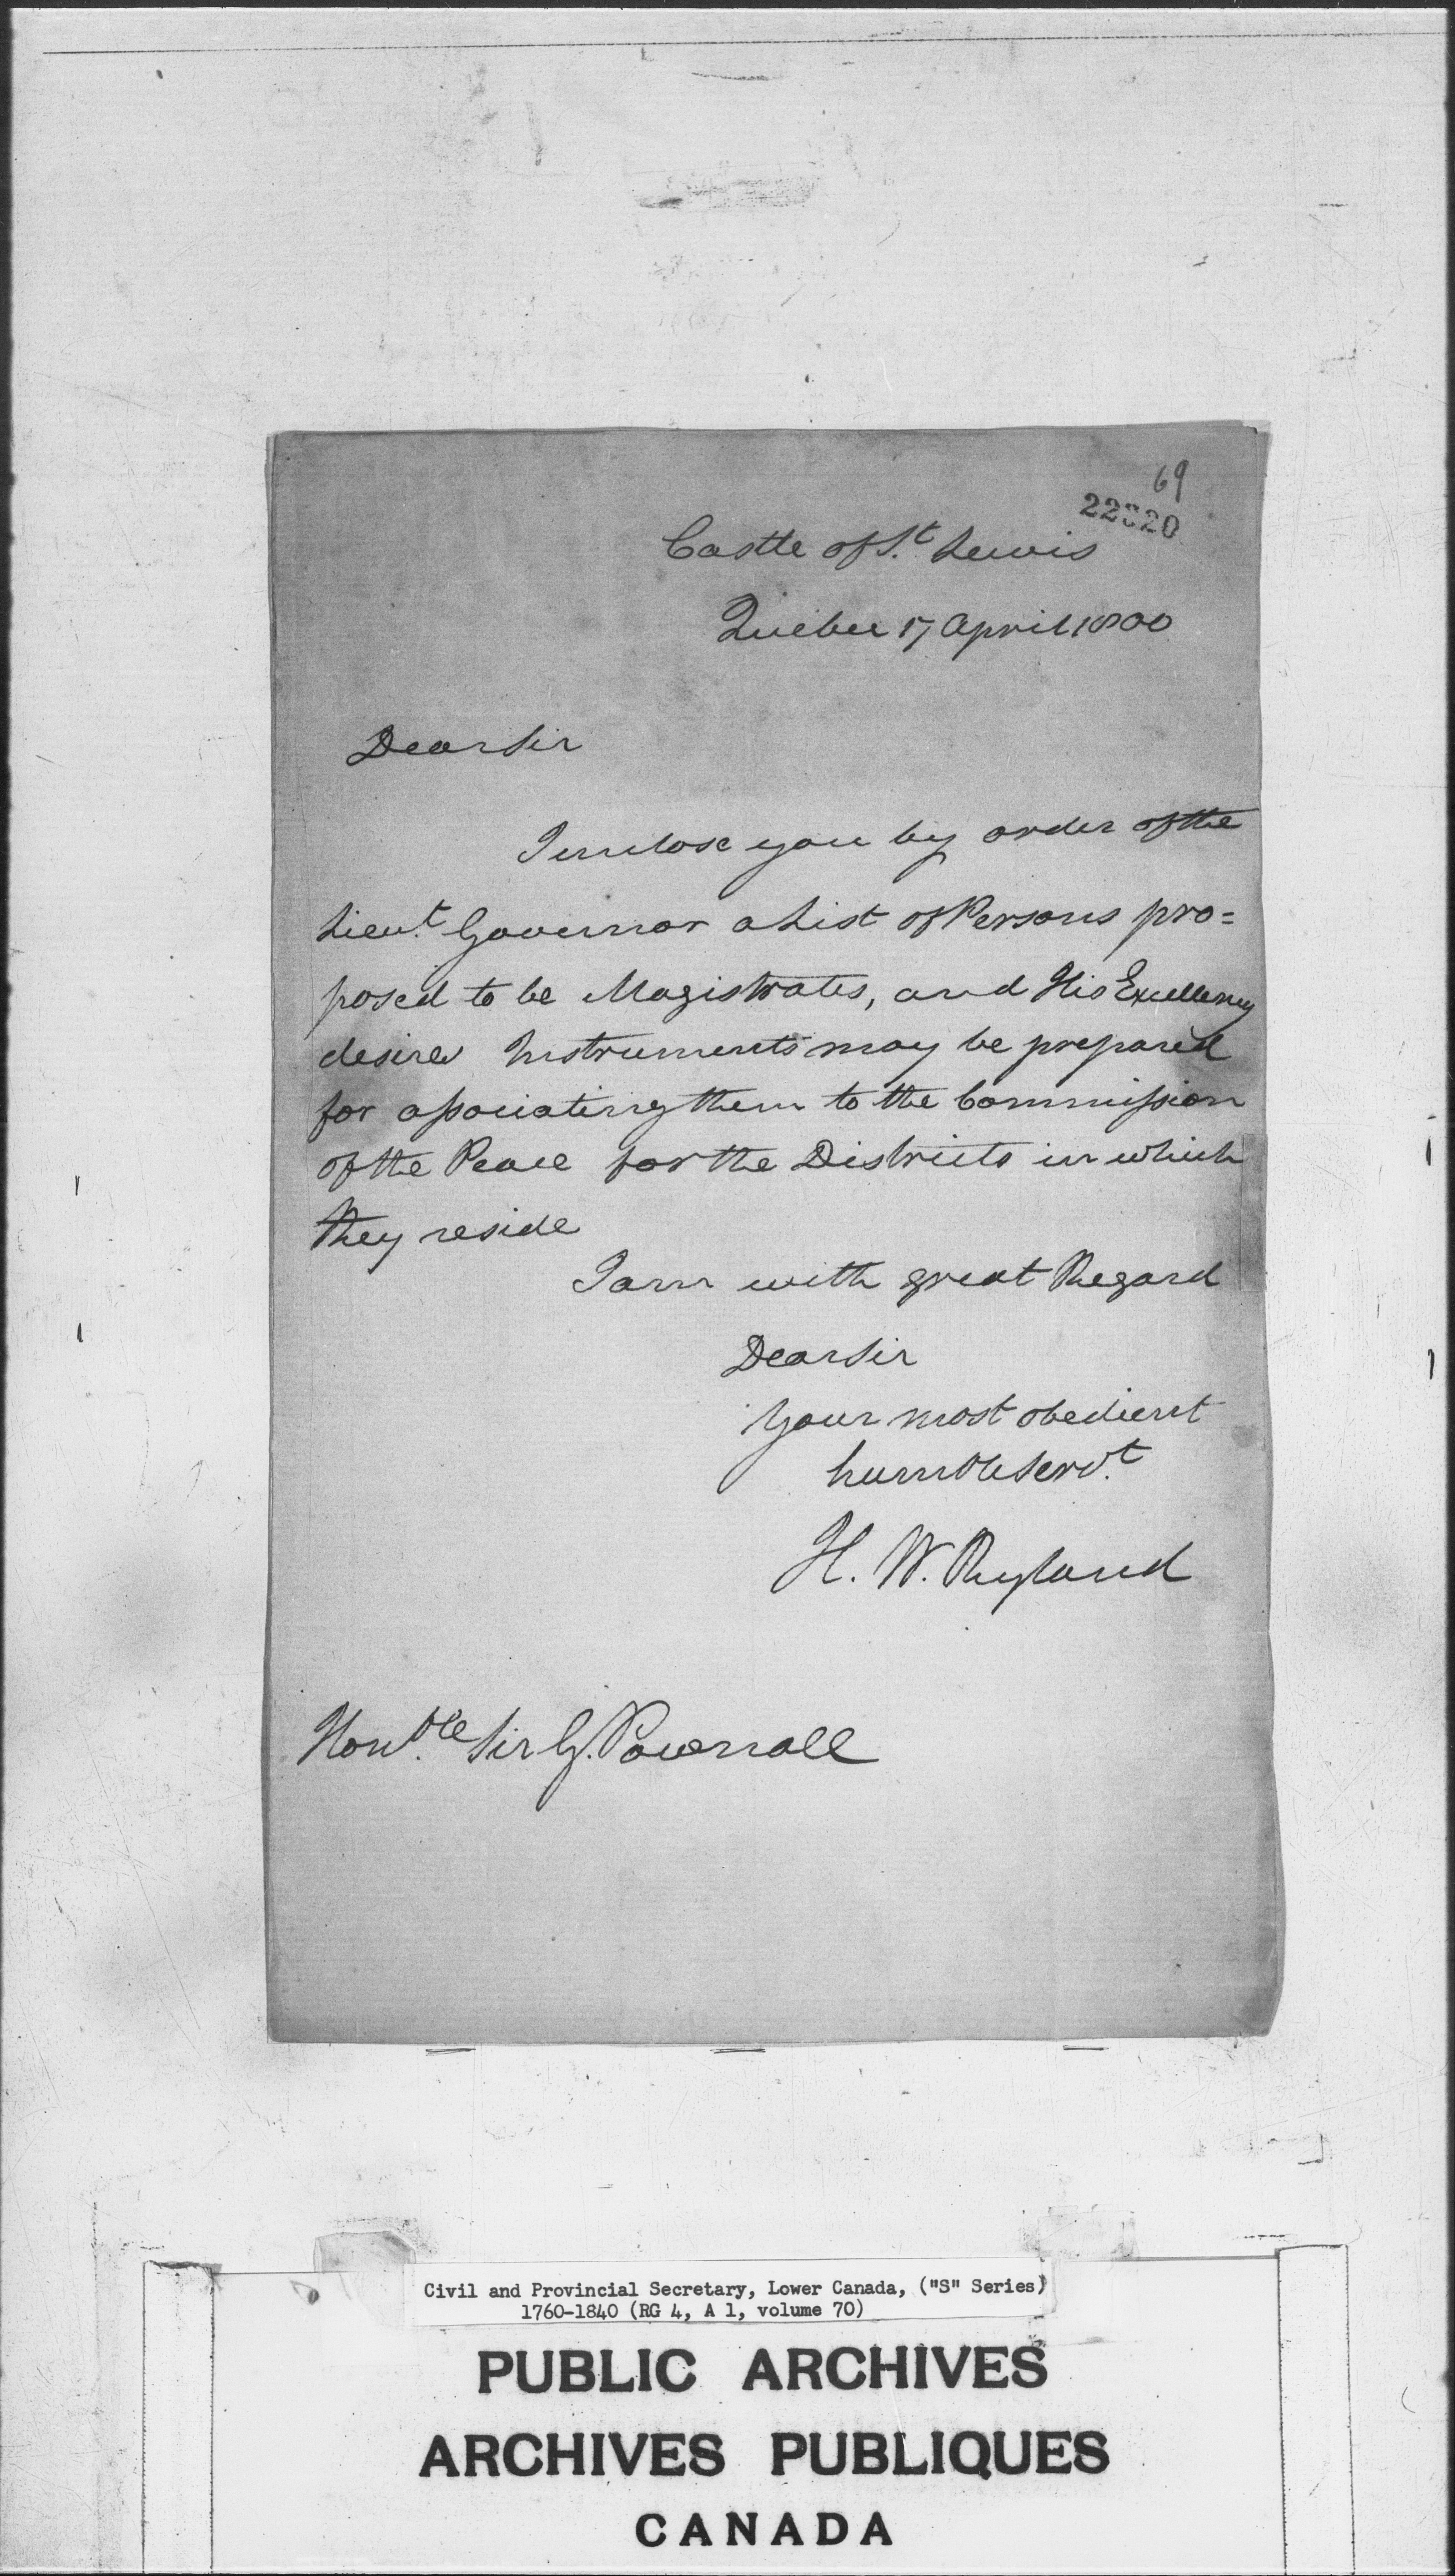 69
22320
Castle of St. Lewis
Quebec 17 April 1800
Dear Sir
I enclose you by order of the
Lieut. Governor a List of Persons pro=
posed to be Magistrates, and His Excellency
desires Instruments may be prepared
for associating them to the Commission
of the Peace for the Districts in which
they reside
I am with great Regard
Dear Sir
Your most obedient
humble Servt.
H. W. Ryland
Honble. Sir G. Pownall
Civil and Provincial Secretary, Lower Canada, ("S" Series)
1760-1840 (RG 4, A 1, volume 70)
PUBLIC ARCHIVES
ARCHIVES PUBLIQUES
CANADA